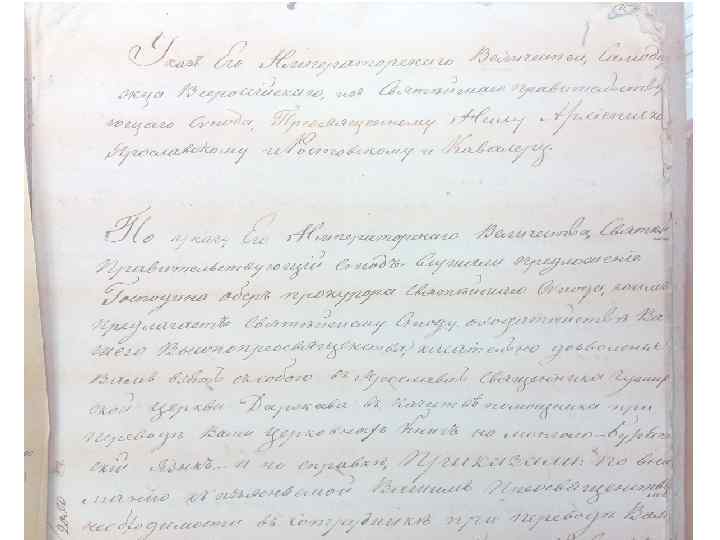 Указъ Его Императорскаго Величества, Самодер
жца Всероссійскаго, изъ Святѣйшаго правительству
ющаго Синода, Преосвященному Нилу Архіепископу
Ярославскому и Ростовскому и Кавалеру.
По указу Его Императорскаго Величества, Святѣй
Правительствующій Синодъ слушали предложеніе
Господина оберъ прокурора Святѣйшаго Синода, коимъ
предлагаетъ Святѣйшему Синоду о ходатайствѣ Ва
шего Высокопреосвященства, касательно дозволенія
Вамъ взять съ собою въ Ярославль Священника
ской церкви Доржѣева въ качествѣ помощника при
переводѣ Вами Церковныхъ Книгъ на Монголо-Бурят
скій языкъ. и по справкѣ, Приказали: По вни
манію къ изъясняемой Вашимъ Преосвященствомъ
необходимости въ сотрудникѣ при переводѣ Вами